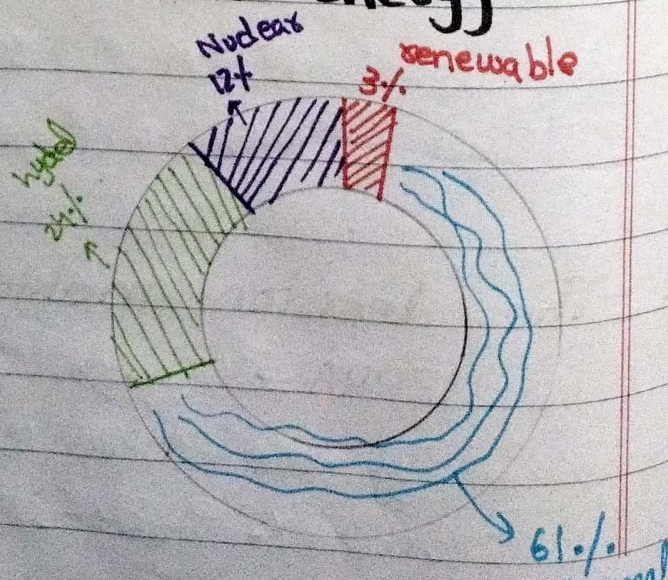 Nuclear
12%
3%
renewable
hydel
24%
61%